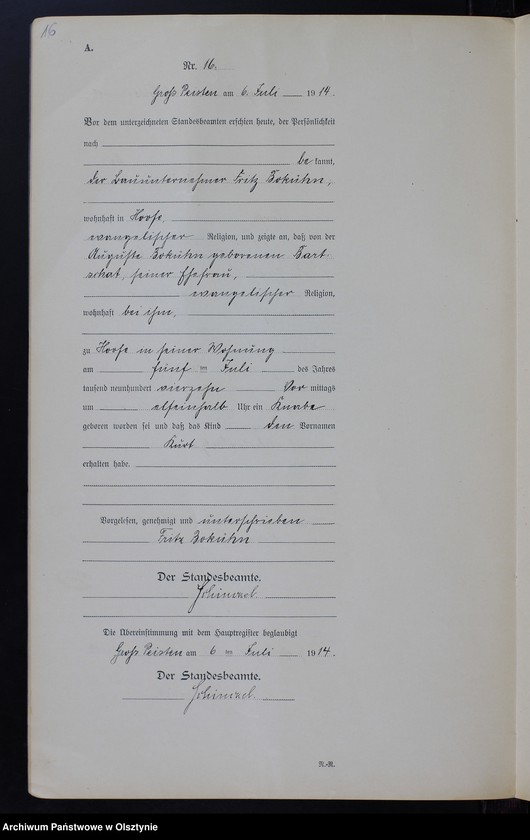 16
A.
Nr. 16.
Groß Peisten am 6. Juli 1914.
Vor dem unterzeichneten Standesbeamten erschien heute, der Persönlichkeit
nach
bekannt,
der Bauunternehmer Fritz Bokuhn,
wohnhaft in Hoofe,
evangelischer Religion, und zeigte an, daß von der
Auguste Bokuhn geborenen Bart-
schat, seiner Ehefrau,
evangelischer Religion,
wohnhaft bei ihm,
zu Hoofe in seiner Wohnung
am fünften Juli des Jahres
tausend neunhundert vierzehn Vormittags
um elfeinhalb Uhr ein Knabe
geboren worden sei und daß das Kind den Vornamen
Kurt
erhalten habe.
Vorgelesen, genehmigt und unterschrieben
Fritz Bokuhn
Der Standesbeamte.
Schimmel.
Die Übereinstimmung mit dem Hauptregister beglaubigt
Groß Peisten am 6ten Juli 1914.
Der Standesbeamte.
Schimmel.
N.-R.
Archiwum Państwowe w Olsztynie